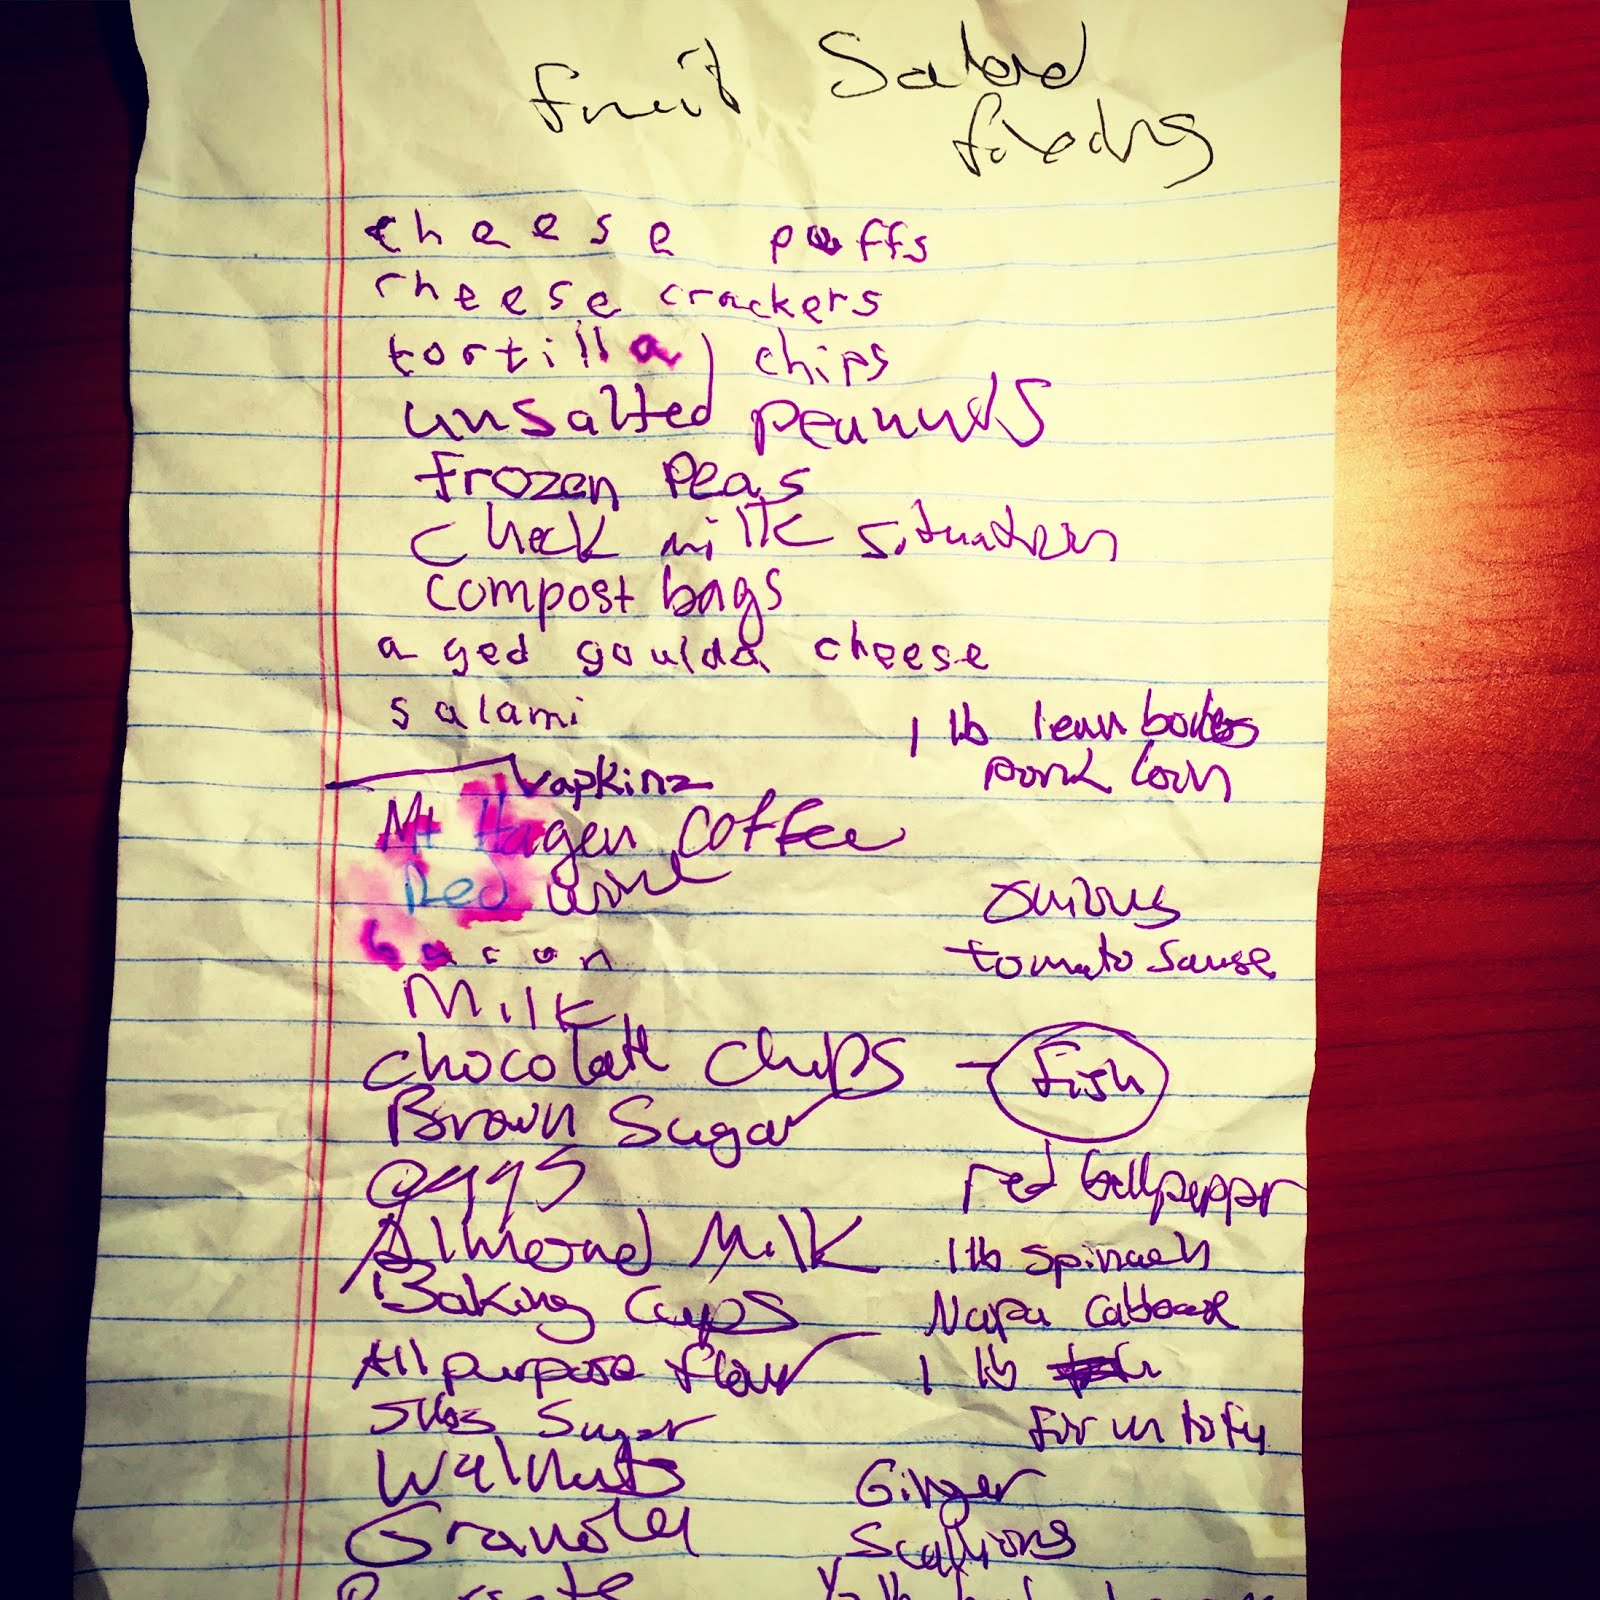 Fruit Salad
fixings
cheese puffs
cheese crackers
tortilla chips
unsalted peanuts
frozen peas
check milk situation
compost bags
aged goulda cheese
salami
1 lb lean
pork loin
Napkinz
Mt Hagen Coffee
Red wine
bacon
Milk
chocolate chips
Brown Sugar
eggs
Almond Milk
Baking Cups
All purpose flour
5lbs Sugar
Walnuts
Granola
onions
tomato Sause
Fish
red bellpepper
1 lb spinach
Napa Cabbage
1 lb
firm tofu
Ginger
Scallions